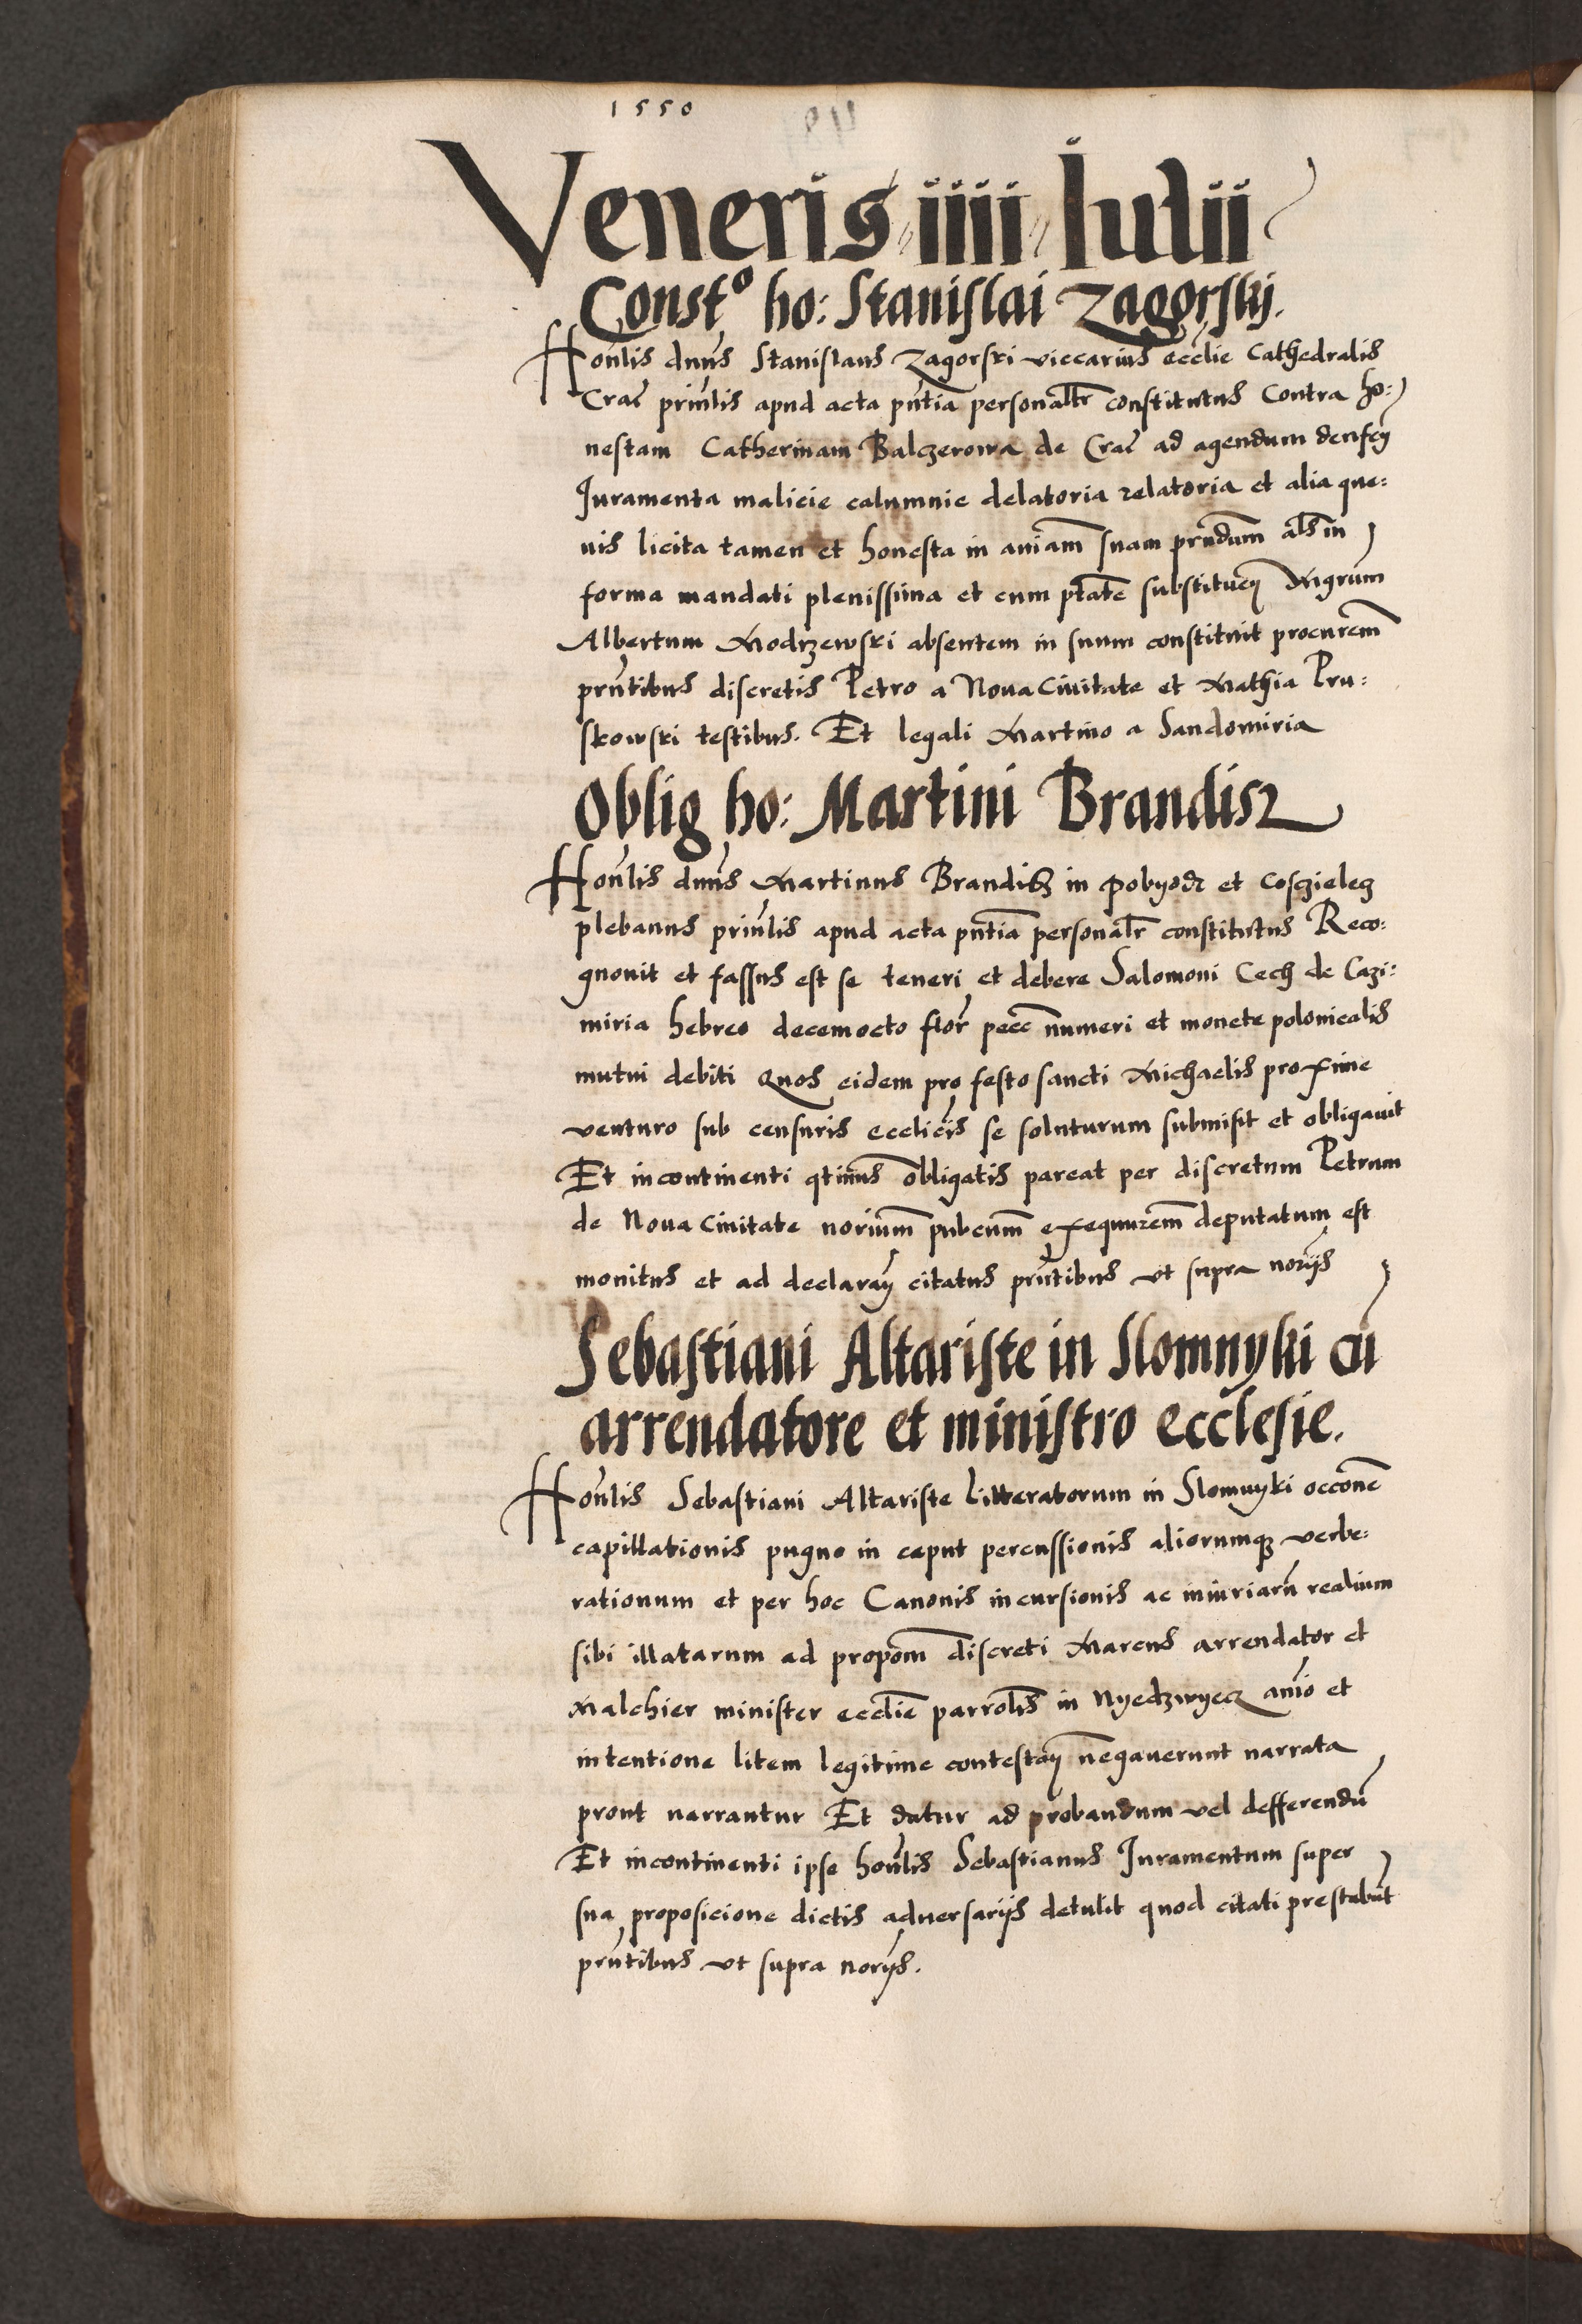 1550
Veneris iiii Iulii
Constº ho: Stanislai Zagorskij.
Honlis dnus Stanislaus Zagorski viccarius ecclie Cathedralis
Crac prinlis apud acta pntia personalr constitutus Contra ho:
nestam Catherinam Balczerowa de Crac ad agendum defen
Juramenta malicie calumnie delatoria relatoria et alia que:
uis licita tamen et honesta in aniam suam prndum als in
forma mandati plenissima et cum ptate substituen Mgrum
Albertum Modrzewski absentem in suum constituit procurem
prntibus discretis Petro a Noua Ciuitate et Mathia Pru:
skowski testibus. Et legali Martino a Sandomiria
Oblig ho: Martini Brandisz
Honlis dnus Martinus Brandisz in Pobyodr et Cosczielecz
plebanus prinlis apud acta pntia personalr constitutus Reco:
gnouit et fassus est se teneri et debere Salomoni Cech de Cazi:
miria hebreo decemocto flor pecc numeri et monete polonicalis
mutui debiti Quos eidem pro festo sancti Michaelis proxime
venturo sub censuris ecclicis se soluturum submisit et obligauit
Et incontinenti qtinus obligatis pareat per discretum Petrum
de Noua Ciuitate norium pubcum exequurem deputatum est
monitus et ad declaran citatus prntibus vt supra norijs
Sebastiani Altariste in Slomnyki cu
arrendatore et ministro ecclesie.
Honlis Sebastiani Altariste Litteratorum in Slomnyki occone
capillationis pugno in caput percussionis aliorumq verbe:
rationum et per hoc Canonis incursionis ac iniuriaru realium
sibi illatarum ad propom discreti Marcus arrendator et
Malchier minister ecclie parrolis in Nyedzwyecz anio et
intentione litem legitime contestan negauerunt narrata
prout narrantur Et datur ad probandum vel defferendu
Et incontinenti ipse honlis Sebastianus Juramentum super
sua proposicione dictis aduersarijs detulit quod citati prestabut
prntibus vt supra norijs.